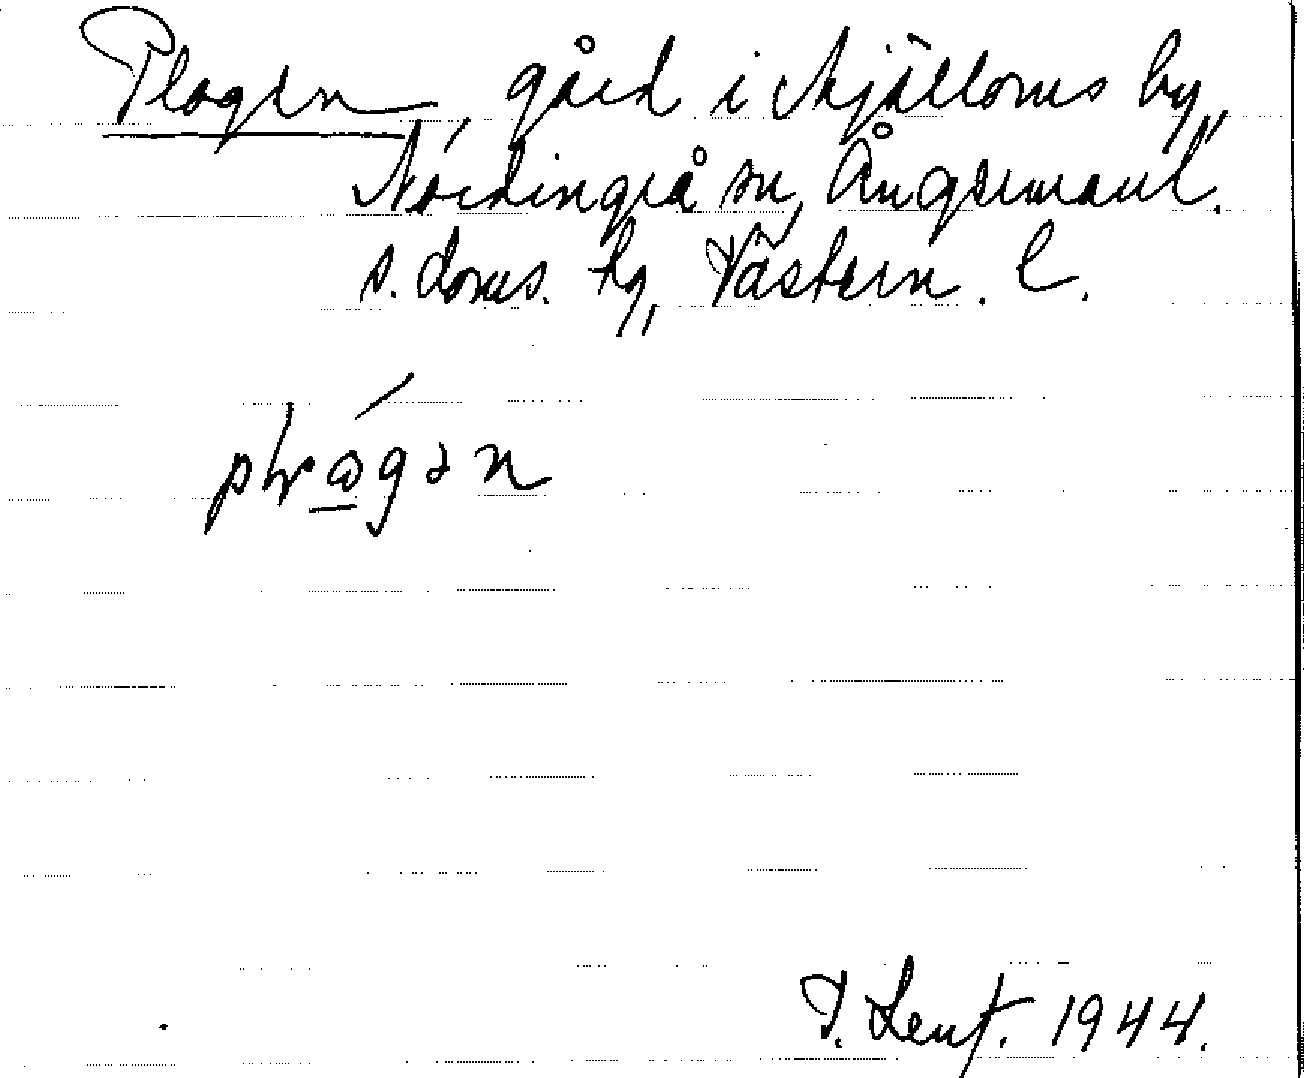 Plogen, gård i Mjälloms by,
Nordingrå sn, Ångermanl.
s. doms. hg, Västern. l.
T. Lenf. 1944.